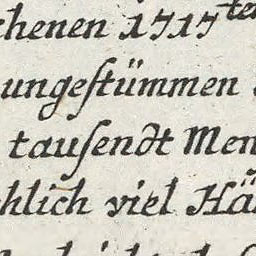 chenen 1717ten
ungeſtümmen
tauſendt Men
hlich viel Hä